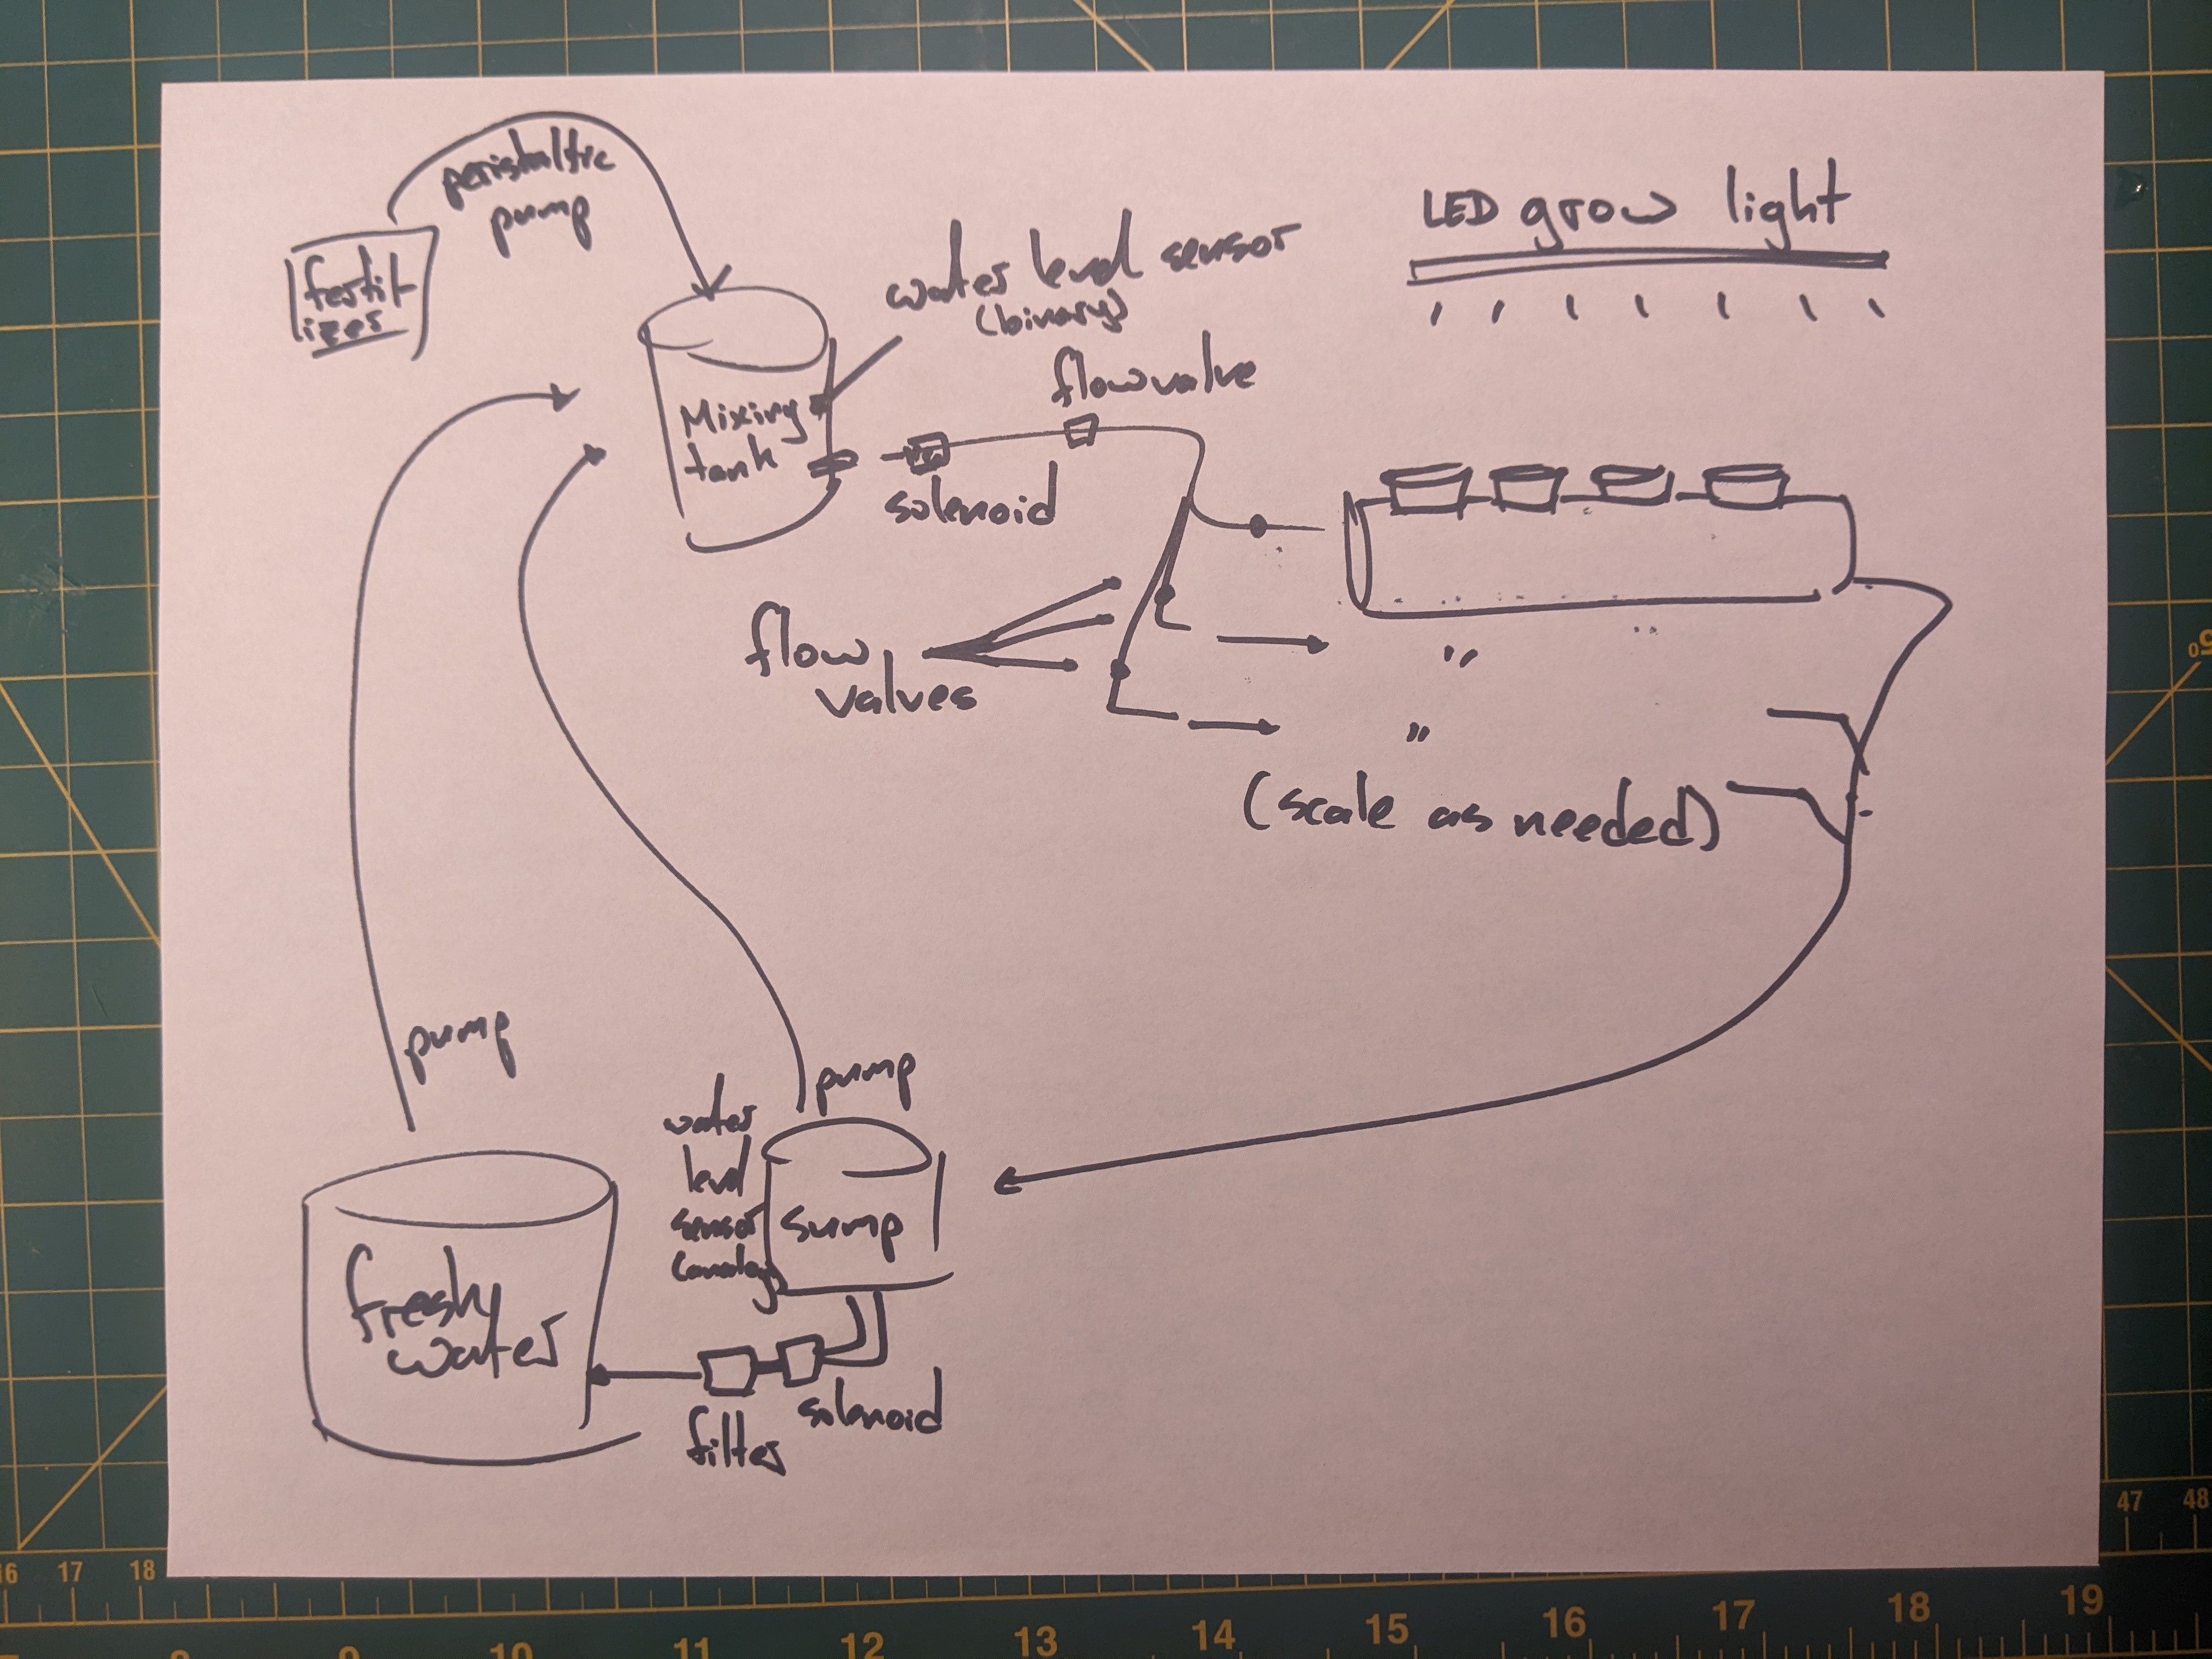 peristaltic
pump
fertil
izer
LED grow light
water level sensor
(binary)
flow valve
Mixing
tank
solenoid
flow
valves
"
"
(scale as needed)
pump
pump
water
level
sensor
(analog)
sump
fresh
water
solenoid
filter
50
47 48
16 17 18
8 9 10 11 12 13 14 15 16 17 18 19